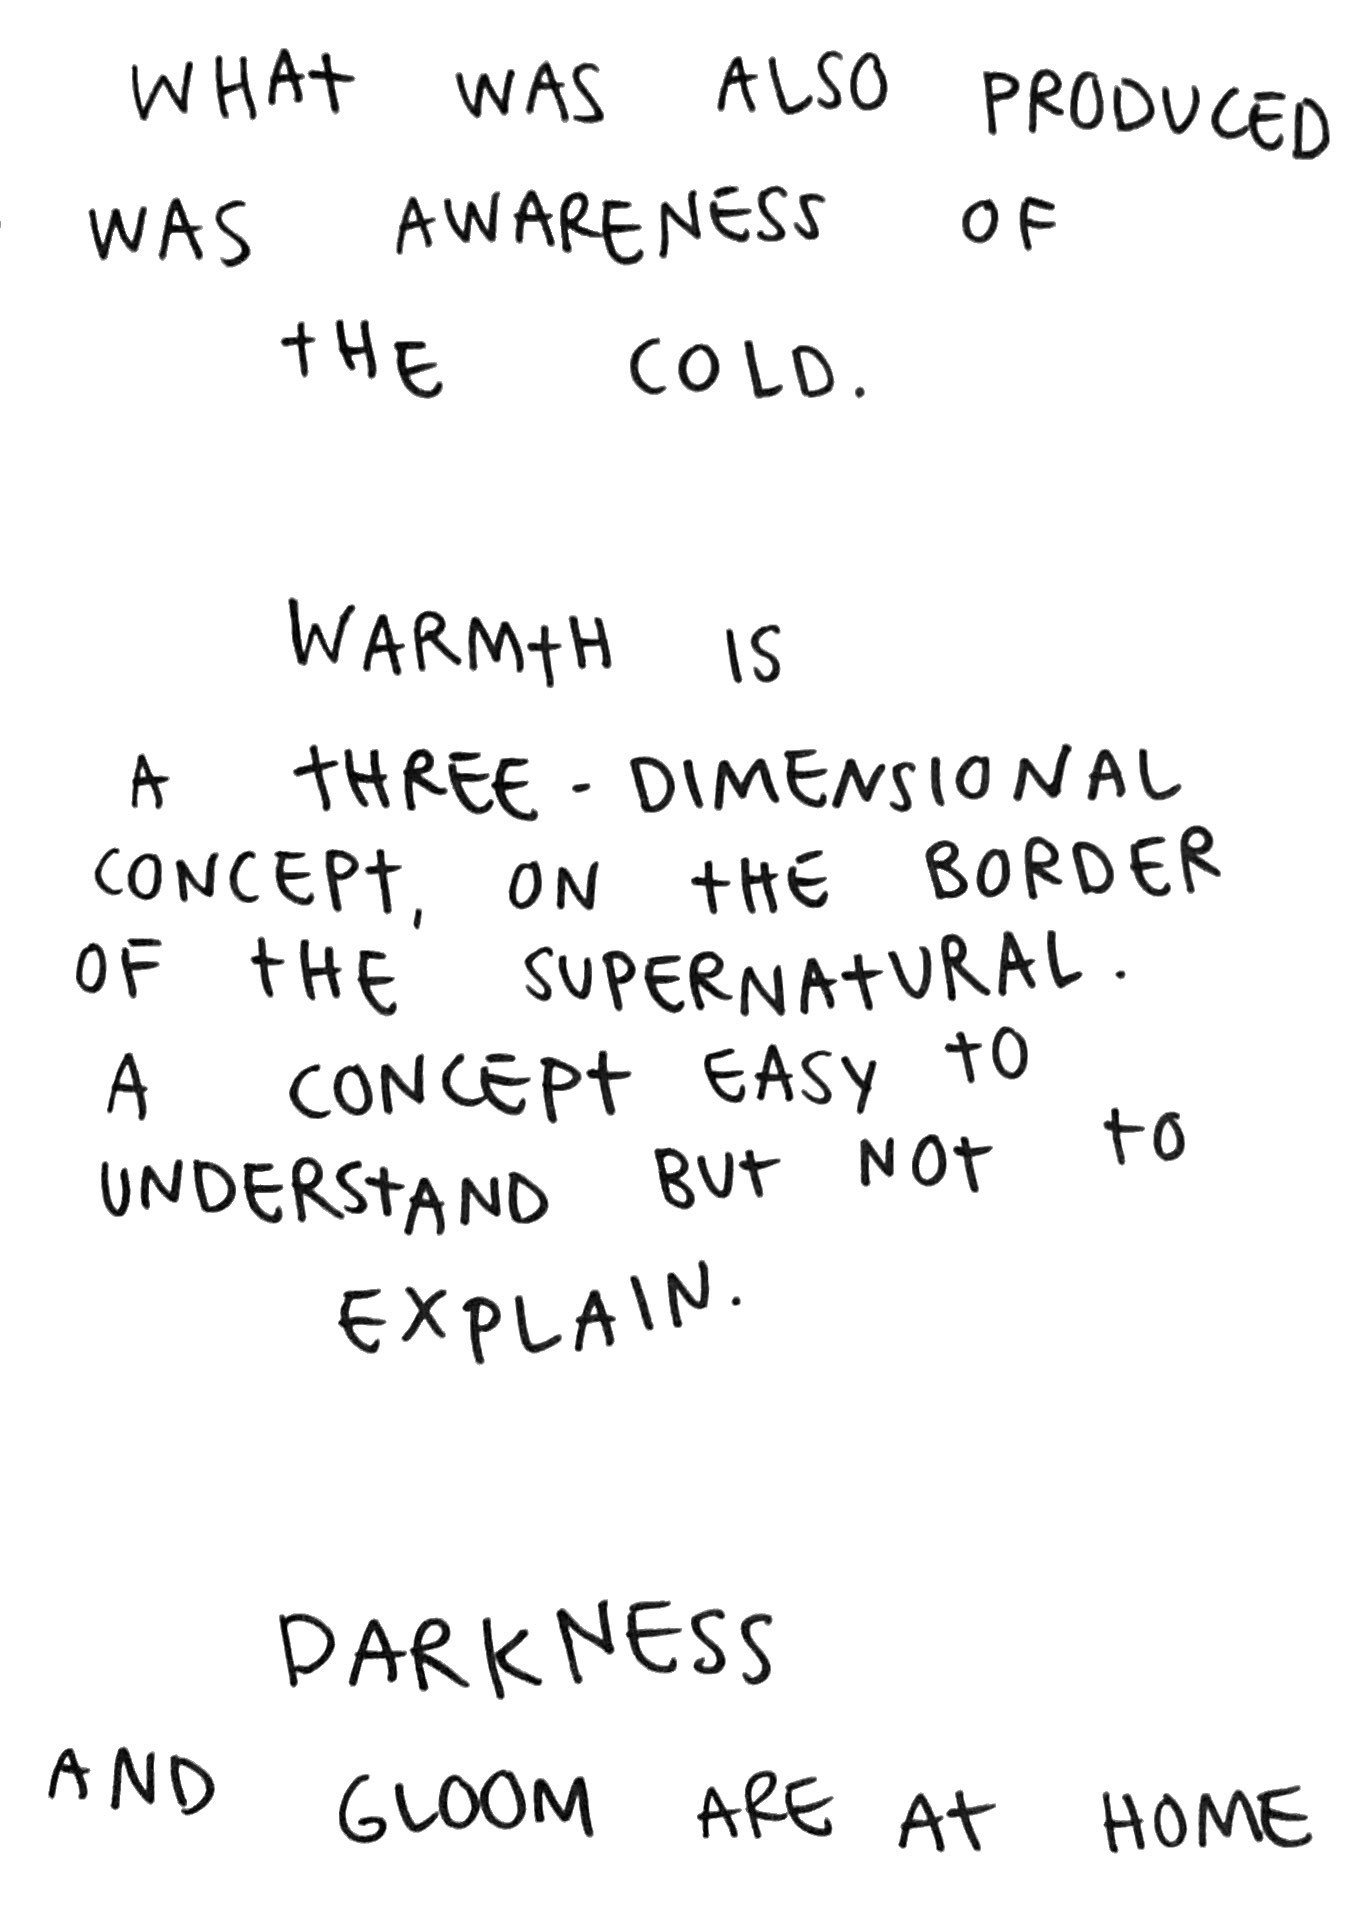 WHAT WAS ALSO PRODUCED
WAS AWARENESS OF
THE COLD.
WARMTH IS
A THREE-DIMENSIONAL
CONCEPT, ON THE BORDER
OF THE SUPERNATURAL.
A CONCEPT EASY TO
UNDERSTAND BUT NOT TO
EXPLAIN.
DARKNESS
AND GLOOM ARE AT HOME